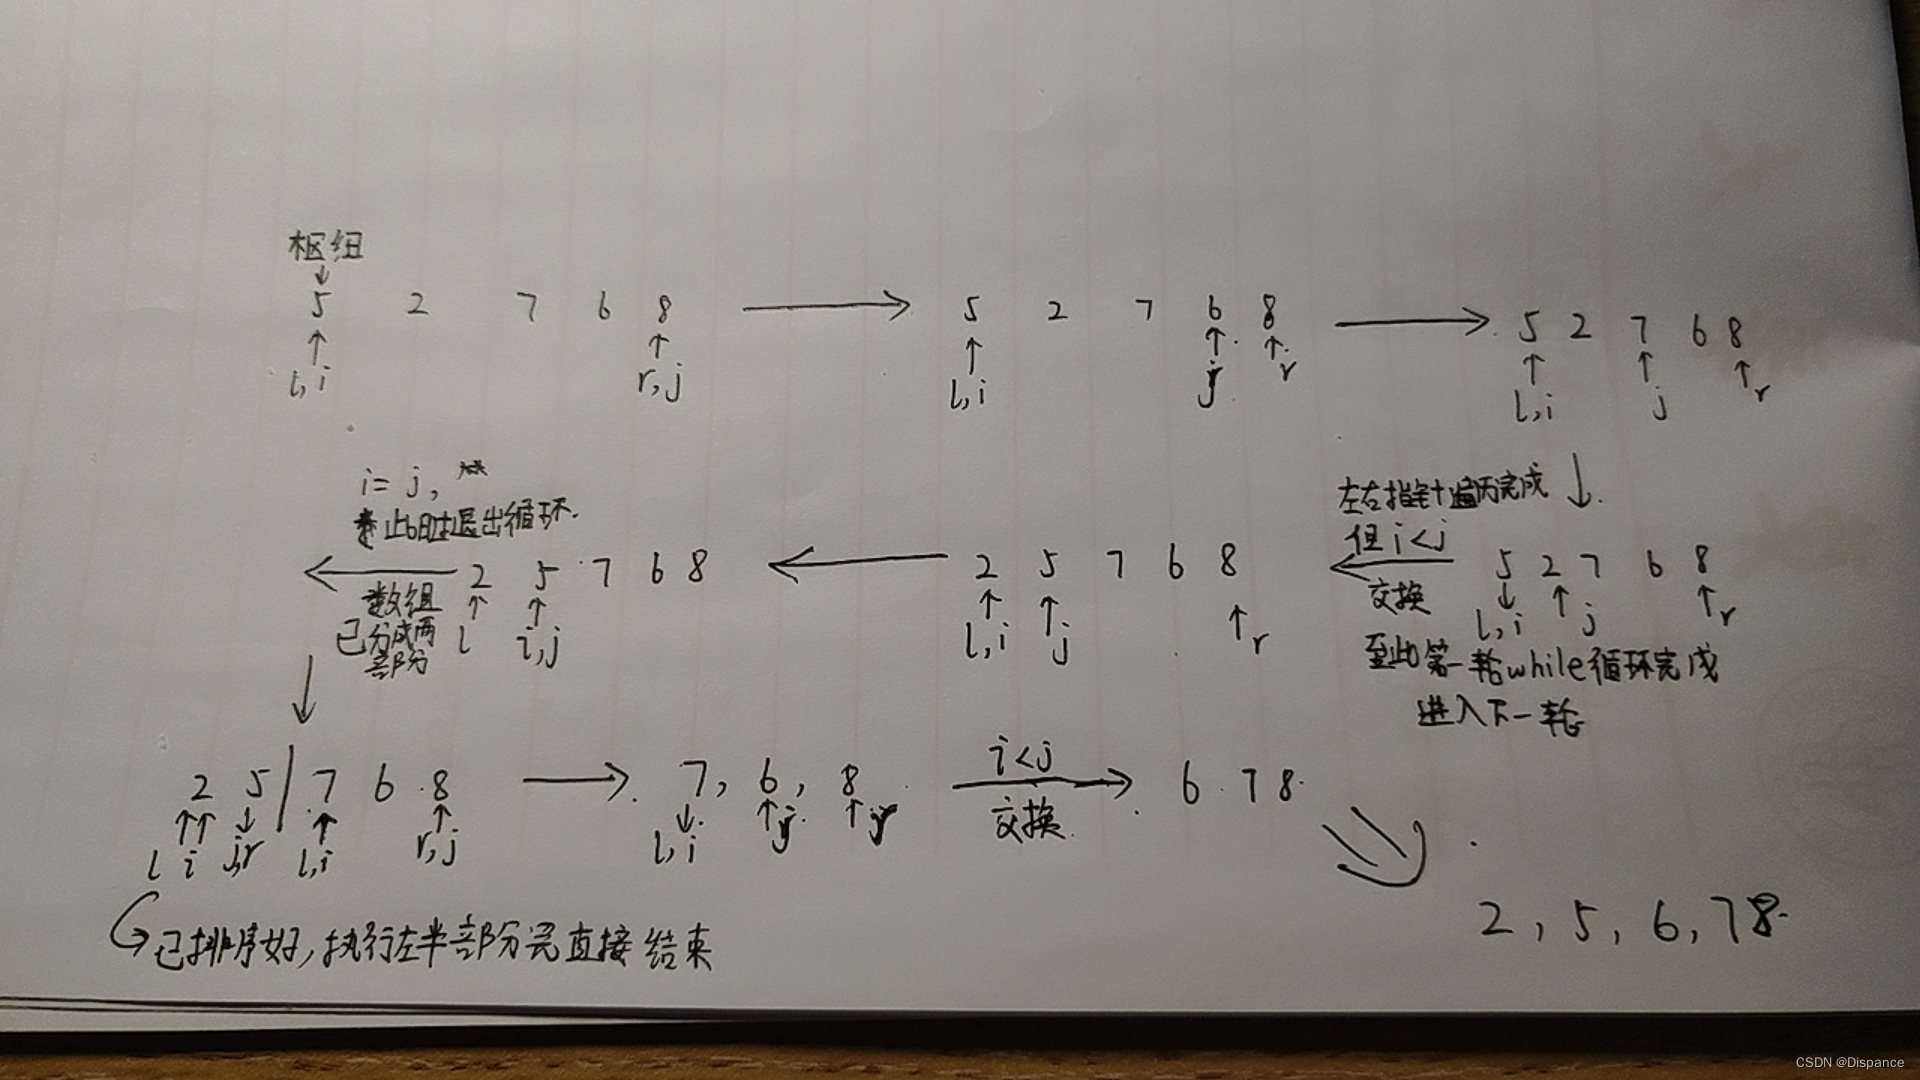 枢纽
5 2 7 6 8
l,i r,j
5 2 7 6 8
l,i j r
5 2 7 6 8
l,i j r
左右指针遍历完成
但i<j
交换
5 2 7 6 8
l,i j r
至此第一轮while循环完成
进入下一轮
2 5 7 6 8
l,i j r
i=j,
此时退出循环.
2 5 7 6 8
l i,j
数组
已分成两
部分
2 5 | 7 6 8
l i j,r l,i r,j
已排序好,执行左半部分完直接结束
7, 6, 8
l,i j
i<j
交换
6 7 8
2, 5, 6, 7 8
CSDN @Dispance